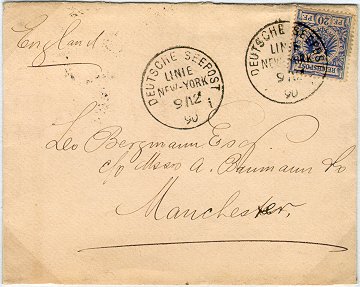 England
DEUTSCHE SEEPOST
LINIE
NEW-YORK
90
DEUTSCHE SEEPOST
LINIE
NEW-YORK
90
REICHSPOST
20 PF
Leo Bergmann Esq.
c/o Messrs A. Baumann & Co
Manchester,